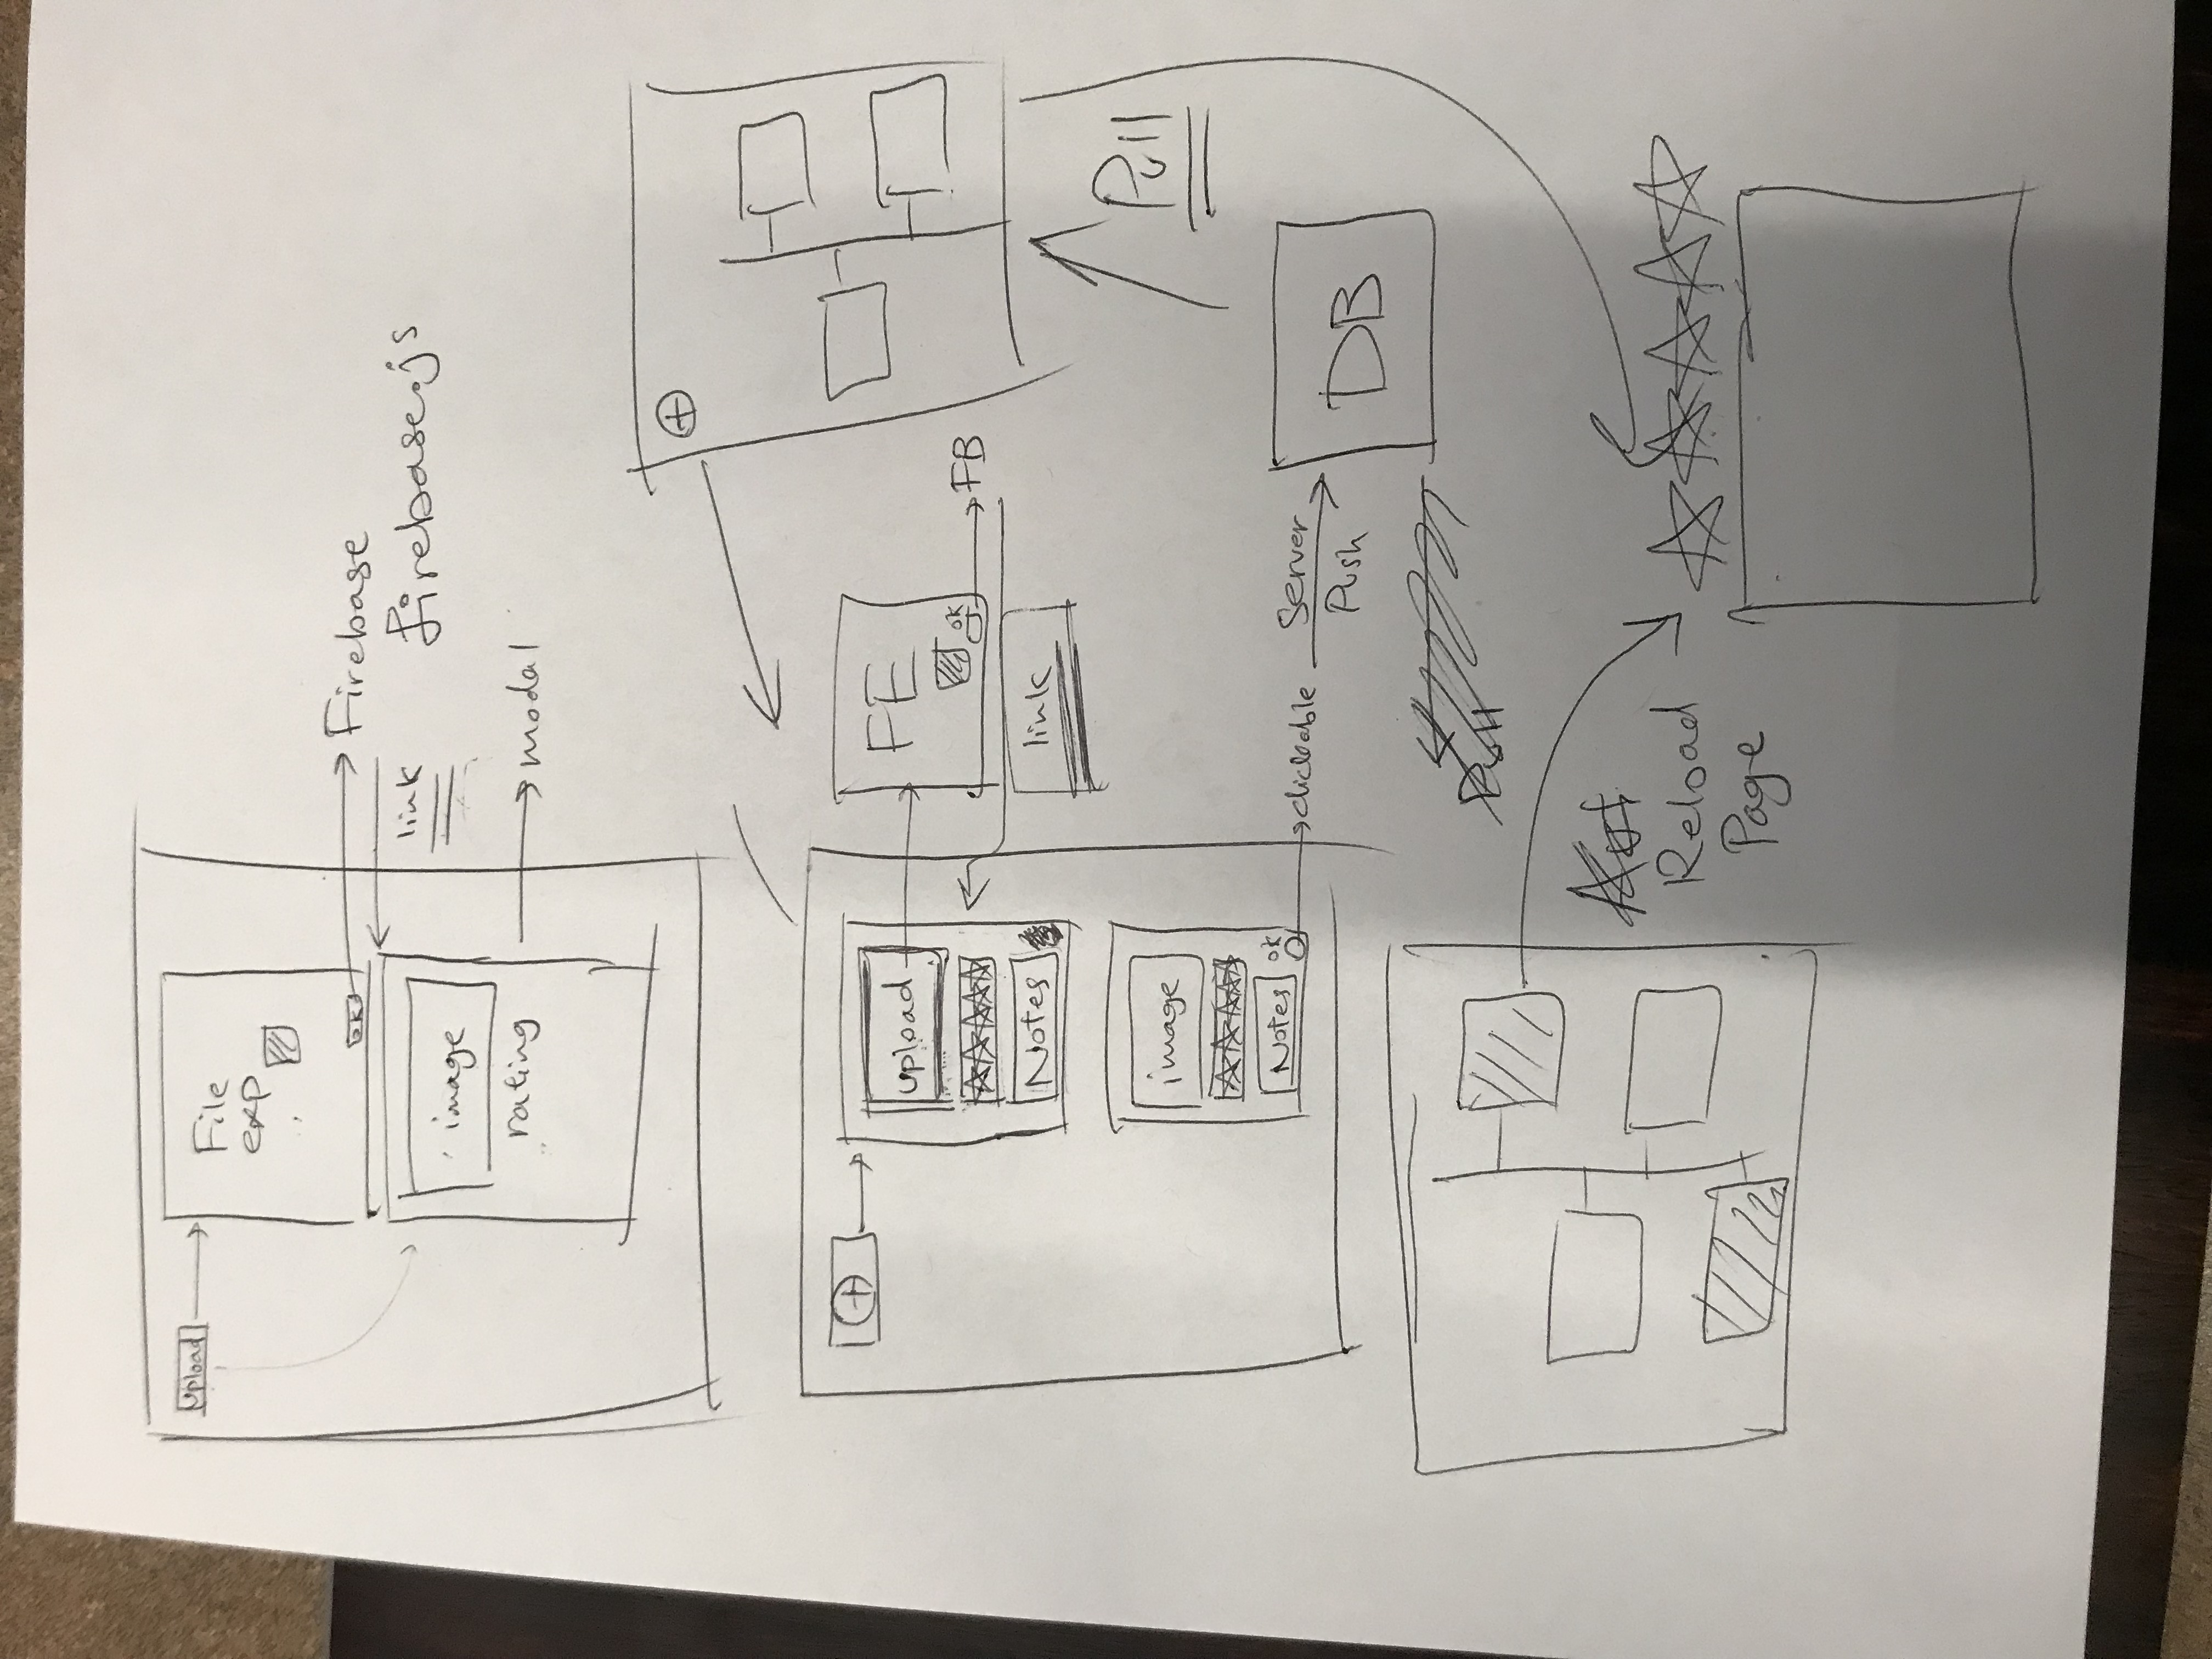 upload
File
exp
ok
Firebase
firebase.js
link
image
rating
modal
upload
FE
ok
FB
Notes
link
image
Pull
Notes
ok
clickable
Server
Push
DB
Pull
Aut
Reload
Page